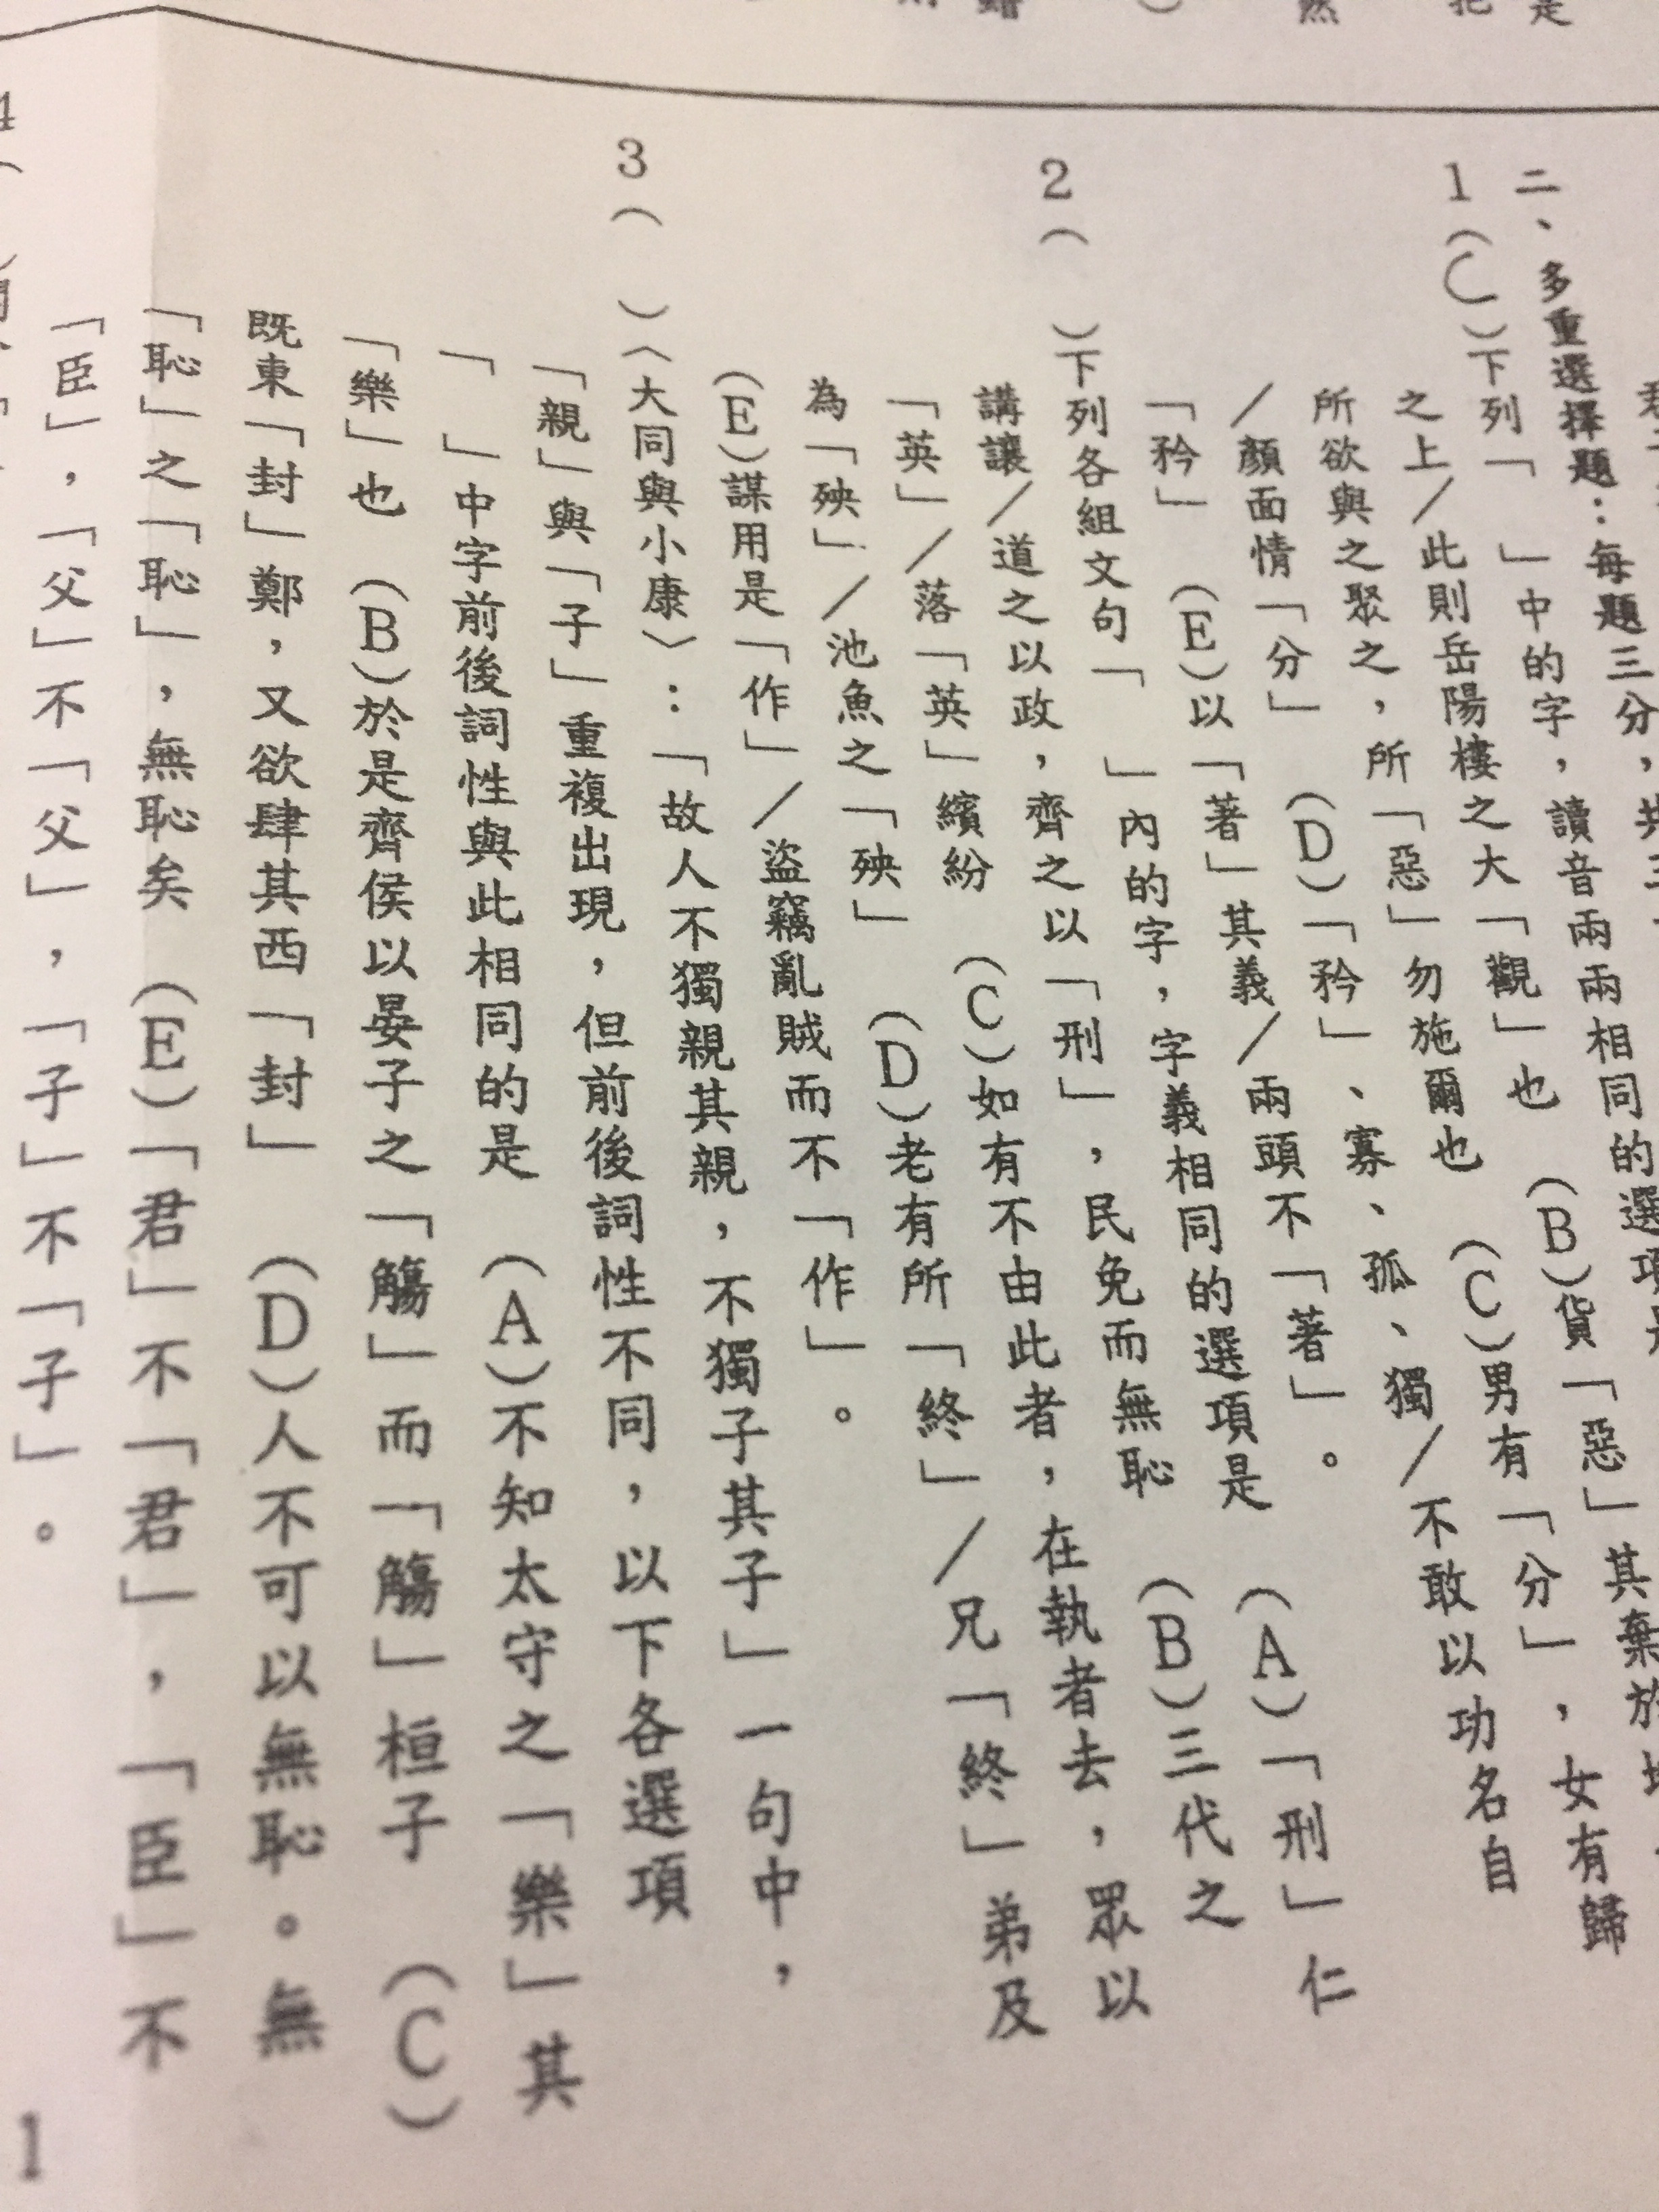 二、多重選擇題：每題三分，共
1（C）下列「　」中的字，讀音兩兩相同的選項
之上／此則岳陽樓之大「觀」也　(B)貨「惡」其棄於
所欲與之聚之，所「惡」勿施爾也　(C)男有「分」，女有歸
／顏面情「分」　(D)「矜」、寡、孤、獨／不敢以功名自
「矜」　(E)以「著」其義／兩頭不「著」。
2（　）下列各組文句「　」內的字，字義相同的選項是　(A)「刑」仁
講讓／道之以政，齊之以「刑」，民免而無恥　(B)三代之
「英」／落「英」繽紛　(C)如有不由此者，在執者去，眾以
為「殃」／池魚之「殃」　(D)老有所「終」／兄「終」弟及
(E)謀用是「作」／盜竊亂賊而不「作」。
3（　）〈大同與小康〉：「故人不獨親其親，不獨子其子」一句中，
「親」與「子」重複出現，但前後詞性不同，以下各選項
「　」中字前後詞性與此相同的是　(A)不知太守之「樂」其
「樂」也　(B)於是齊侯以晏子之「觴」而「觴」桓子　(C)
既東「封」鄭，又欲肆其西「封」　(D)人不可以無恥。無
「恥」之「恥」，無恥矣　(E)「君」不「君」，「臣」不
「臣」，「父」不「父」，「子」不「子」。
4（
1